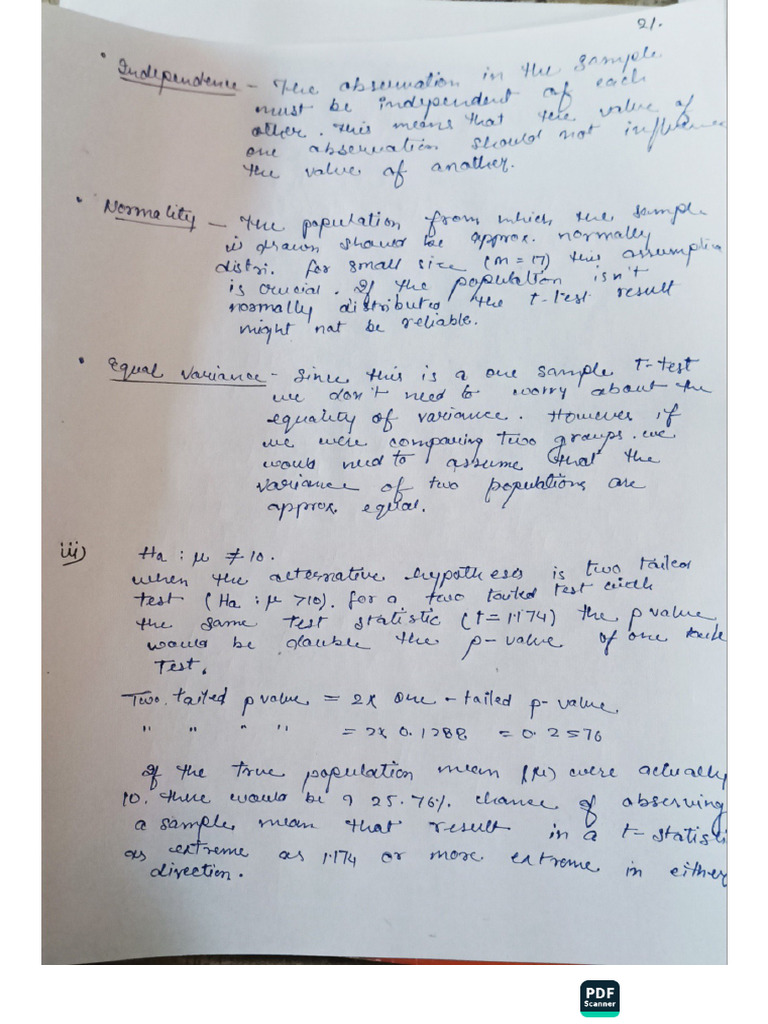 21.
• Independence - The observation in the sample
must be independent of each
other. This means that the value of
one observation should not influence
the value of another.
• Normality - the population from which the sample
is drawn should be approx. normally
distri. for small size (n = 17) this assumption
is crucial. If the population isn't
normally distributed the t-test result
might not be reliable.
• Equal variance - Since this is a one sample t-test
we don't need to worry about the
equality of variance. However if
we were comparing two groups. we
would need to assume that the
variance of two populations are
approx. equal.
iii) Ha : μ ≠ 10.
when the alternative hypothesis is two tailed
test (Ha : μ >10). for a two tailed test with
the same test statistic (t = 1.174) the p value
would be double the p-value of one
Test.
Two tailed p value = 2x one - tailed p-value
" " " " = 2x 0.1288 = 0.2576
If the true population mean (μ) were actually
10. there would be a 25.76% chance of observing
a sample mean that result in a t-statisti
as extreme as 1.174 or more extreme in either
direction.
PDF
Scanner